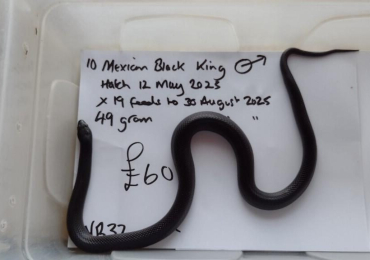 10 Mexican Black King ♂
Hatch 12 May 2025
x 19 feeds to 30 August 2025
49 gram " "
£60
VR37